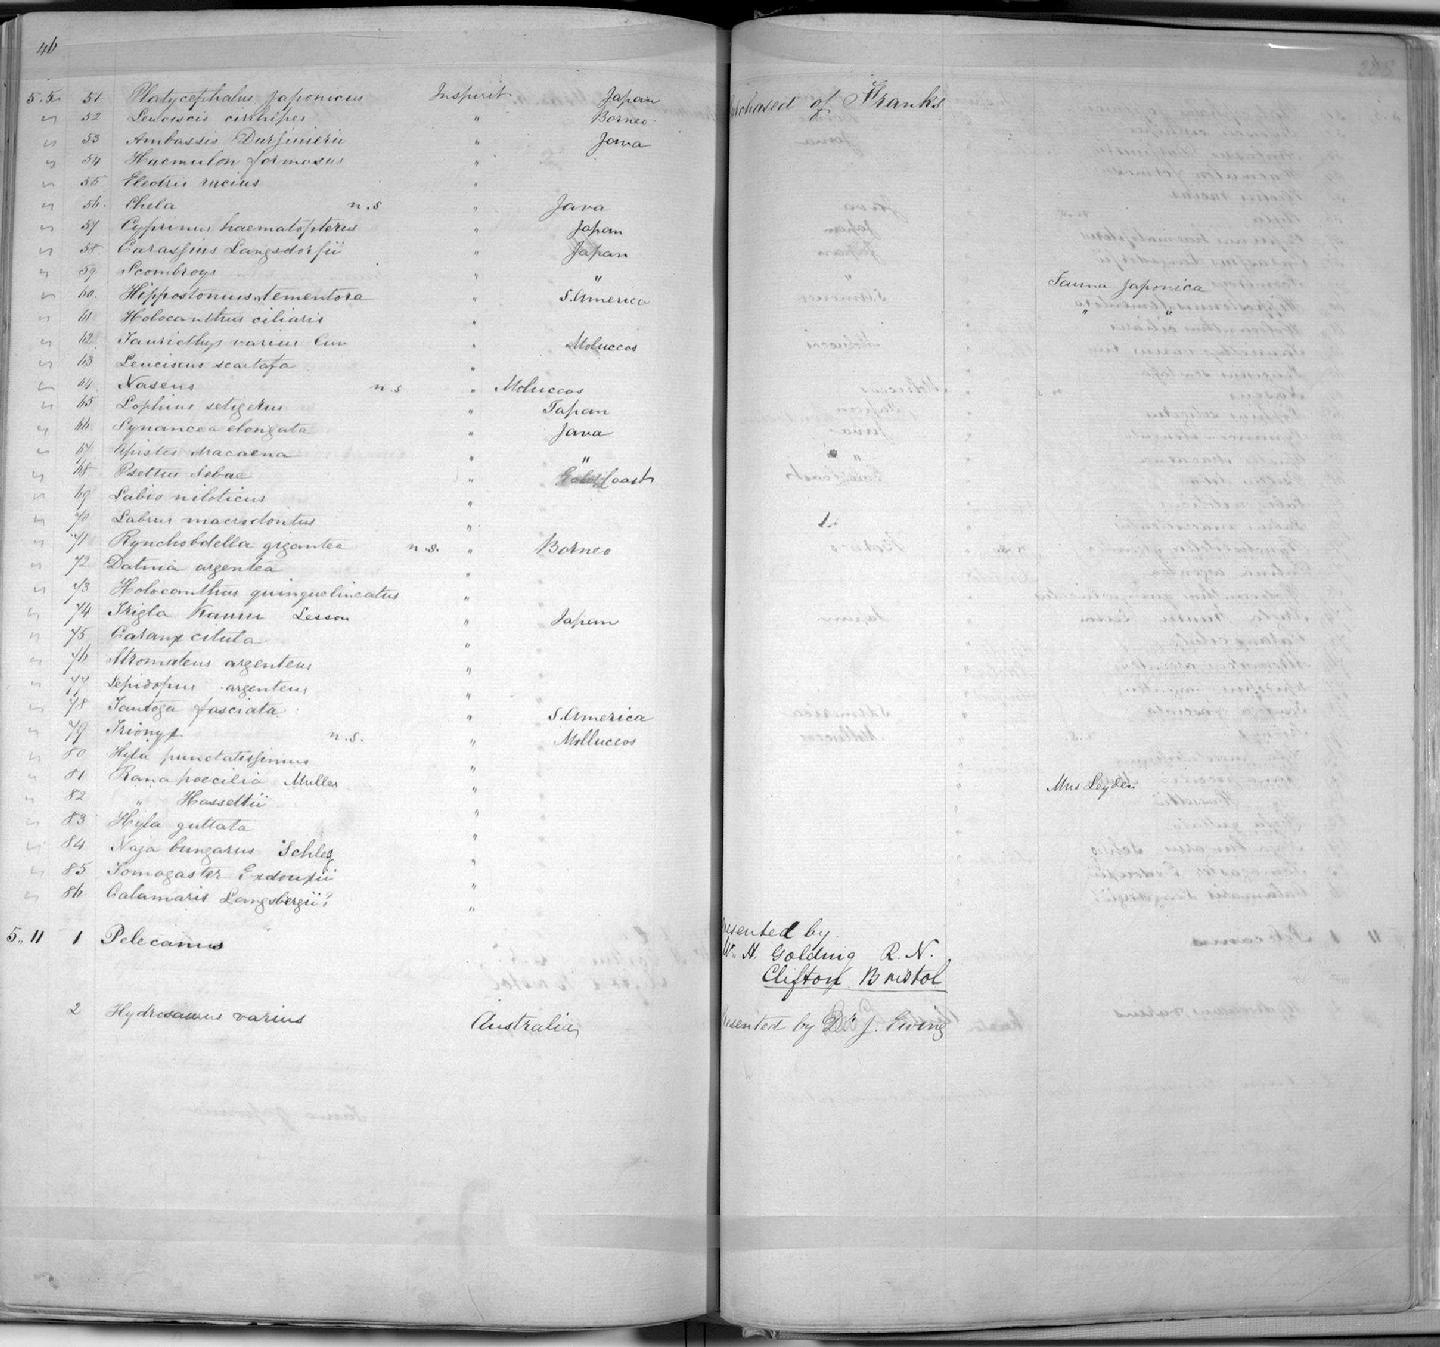 46
5.5. 51 Platycephalus Japonicus Inspirit Japan Purchased of Franks
52 Leuciscis cirrhipes " Borneo
53 Ambassis Dussumierii " Java
54 Haemulon formosus "
55 Eleotris "
56 Chela n.s " Java
57 Cyprinus haematopterus " Japan
58 Carassius Langsdorfii " Japan
59 Scombrops " " Fauna Japonica
60 Hippostomus " S. America "
61 Holocanthus ciliaris "
62 Tauricthys varius Cuv " Moluccos
63 Leuciscus "
64 Naseus n.s " Moluccos
65 Lophius setigerus " Japan
66 Synancea elongata " Java
67 Apistes Macaena " "
68 Psettus Sebae " Gold Coast
69 Labio niloticus "
70 Labrus macrodontus "
71 Rynchobdella gigantea n.s. " Borneo
72 Datnia argentea "
73 Holocanthus quinquelineatus "
74 Trigla Kaumu Lesson " Japan
75 Caranx "
76 Stromateus argenteus "
77 Lepidopus argenteus "
78 Tautoga fasciata " S. America
79 Trionyx n.s. " Molluccos
80 Hyla punctatissimus "
81 Rana poecilia Muller " Mus Leyden
82 " Hasseltii "
83 Hyla guttata "
84 Naja bungarus Schleg "
85 Tomogaster Eydouxii "
86 Calamaris Langsbergii? "
5.. 11 1 Pelecanus Presented by
W. H. Golding R.N.
Clifton Bristol
2 Hydrosaurus varius Australia, Presented by Dr J. Ewing